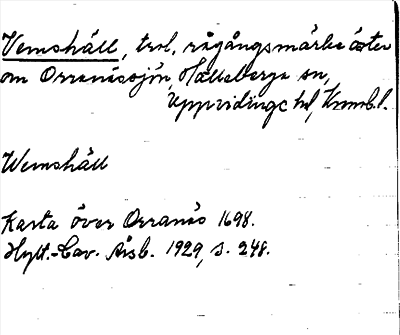 Vemshäll, trol. rågångsmärke öster
om Orranässjön, Hälleberga sn,
Uppvidinge hd, Kronobl.
Wemshäll
Karta över Orranäs 1698.
Hylt.-Cav. Årsb. 1929, s. 248.